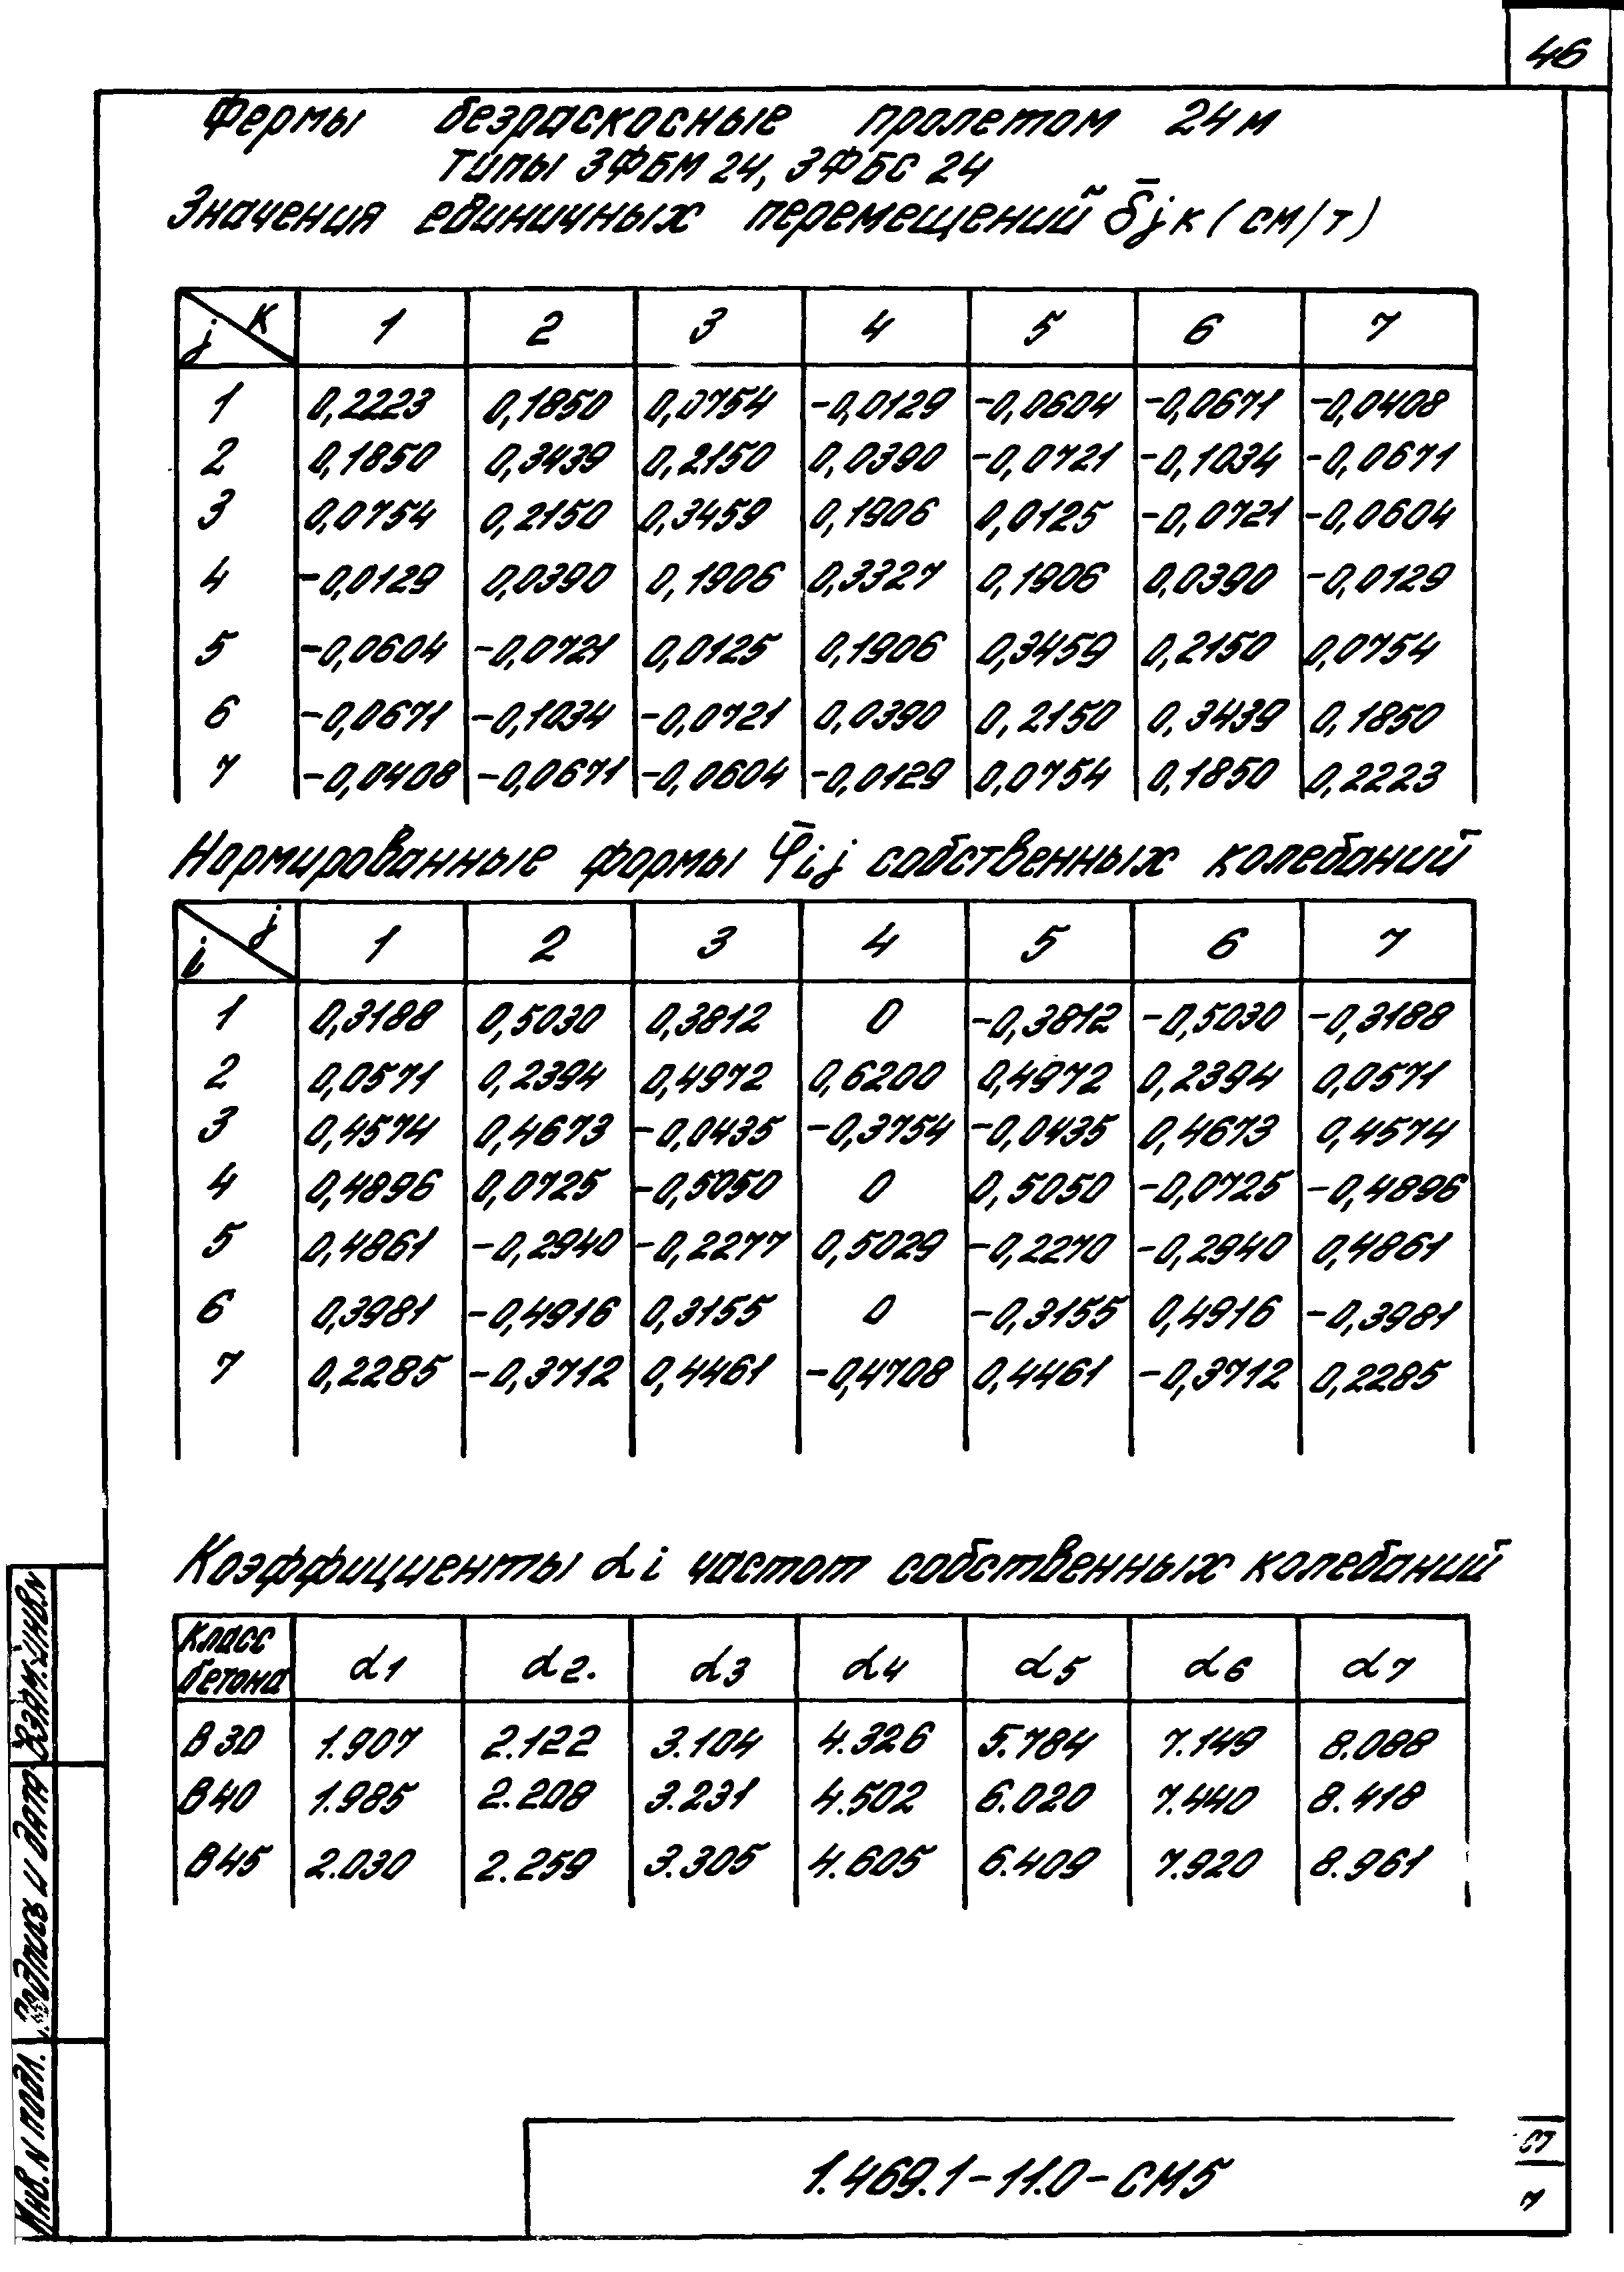 46
Фермы безраскосные пролетом 24м
Типы 3ФБМ 24, 3ФБС 24
Значения единичных перемещений δ̄jк (см/т)
j К 1 2 3 4 5 6 7
1 0,2223 0,1850 0,0754 -0,0129 -0,0604 -0,0671 -0,0408
2 0,1850 0,3439 0,2150 0,0390 -0,0721 -0,1034 -0,0671
3 0,0754 0,2150 0,3459 0,1906 0,0125 -0,0721 -0,0604
4 -0,0129 0,0390 0,1906 0,3327 0,1906 0,0390 -0,0129
5 -0,0604 -0,0721 0,0125 0,1906 0,3459 0,2150 0,0754
6 -0,0671 -0,1034 -0,0721 0,0390 0,2150 0,3439 0,1850
7 -0,0408 -0,0671 -0,0604 -0,0129 0,0754 0,1850 0,2223
Нормированные формы φ̄ij собственных колебаний
i j 1 2 3 4 5 6 7
1 0,3188 0,5030 0,3812 0 -0,3812 -0,5030 -0,3188
2 0,0571 0,2394 0,4972 0,6200 0,4972 0,2394 0,0571
3 0,4574 0,4673 -0,0435 -0,3754 -0,0435 0,4673 0,4574
4 0,4896 0,0725 -0,5050 0 0,5050 -0,0725 -0,4896
5 0,4861 -0,2940 -0,2277 0,5029 -0,2270 -0,2940 0,4861
6 0,3981 -0,4916 0,3155 0 -0,3155 0,4916 -0,3981
7 0,2285 -0,3712 0,4461 -0,4708 0,4461 -0,3712 0,2285
Коэффициенты αi частот собственных колебаний
Класс бетона α1 α2. α3 α4 α5 α6 α7
В30 1.907 2.122 3.104 4.326 5.784 7.149 8.088
В40 1.985 2.208 3.231 4.502 6.020 7.440 8.418
В45 2.030 2.259 3.305 4.605 6.409 7.920 8.961
Взам.инв.N
Подпись и дата
Инв. N подл.
1.469.1-11.0-СМ5
7